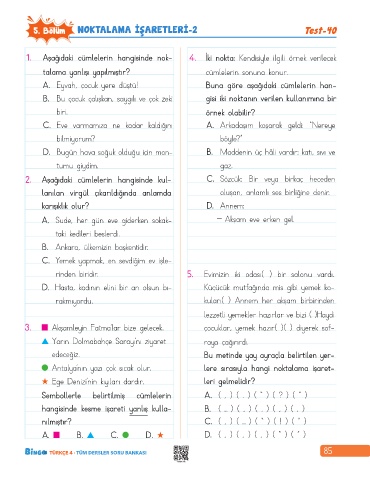 5. Bölüm NOKTALAMA İŞARETLERİ-2 Test-40
1. Aşağıdaki cümlelerin hangisinde nok-
talama yanlışı yapılmıştır?
A. Eyvah, çocuk yere düştü!
B. Bu çocuk çalışkan, saygılı ve çok zeki
biri.
C. Eve varmamıza ne kadar kaldığını
bilmiyorum?
D. Bugün hava soğuk olduğu için mon-
tumu giydim.
2. Aşağıdaki cümlelerin hangisinde kul-
lanılan virgül çıkarıldığında anlamda
karışıklık olur?
A. Sude, her gün eve giderken sokak-
taki kedileri beslerdi.
B. Ankara, ülkemizin başkentidir.
C. Yemek yapmak, en sevdiğim ev işle-
rinden biridir.
D. Hasta, kadının elini bir an olsun bı-
rakmıyordu.
3. ■ Akşamleyin Fatma'lar bize gelecek.
▲ Yarın Dolmabahçe Sarayı'nı ziyaret
edeceğiz.
● Antalya'nın yazı çok sıcak olur.
★ Ege Denizi'nin kıyıları dardır.
Sembollerle belirtilmiş cümlelerin
hangisinde kesme işareti yanlış kulla-
nılmıştır?
A. ■ B. ▲ C. ● D. ★
4. İki nokta: Kendisiyle ilgili örnek verilecek
cümlelerin sonuna konur.
Buna göre aşağıdaki cümlelerin han-
gisi iki noktanın verilen kullanımına bir
örnek olabilir?
A. Arkadaşım koşarak geldi: "Nereye
böyle?"
B. Maddenin üç hâli vardır: katı, sıvı ve
gaz.
C. Sözcük: Bir veya birkaç heceden
oluşan, anlamlı ses birliğine denir.
D. Annem:
– Akşam eve erken gel.
5. Evimizin iki odası( ) bir salonu vardı.
Küçücük mutfağında mis gibi yemek ko-
kuları( ) Annem her akşam birbirinden
lezzetli yemekler hazırlar ve bizi ( )Haydi
çocuklar, yemek hazır( )( ) diyerek sof-
raya çağırırdı.
Bu metinde yay ayraçla belirtilen yer-
lere sırasıyla hangi noktalama işaret-
leri gelmelidir?
BİNGO TÜRKÇE 4 - TÜM DERSLER SORU BANKASI
85